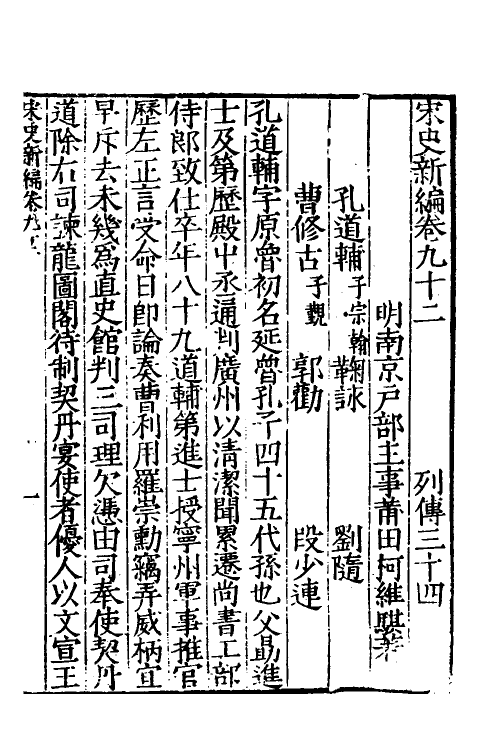 宋史新編卷九十二　列傳三十四
明南京戶部主事莆田柯維騏著
孔道輔子宗翰　鞠詠　劉隨
曹修古子觀　郭勸　段少連
孔道輔字原魯初名延魯孔子四十五代孫也父勗進
士及第歷殿中丞通判廣州以清潔聞累遷尚書工部
侍郎致仕卒年八十九道輔第進士授寧州軍事推官
歷左正言受命日卽論奏曹利用羅崇勳竊弄威柄宜
早斥去未幾爲直史館判三司理欠憑由司奉使契丹
道除右司諫龍圖閣待制契丹宴使者優人以文宣王
宋史新編卷九十二　一